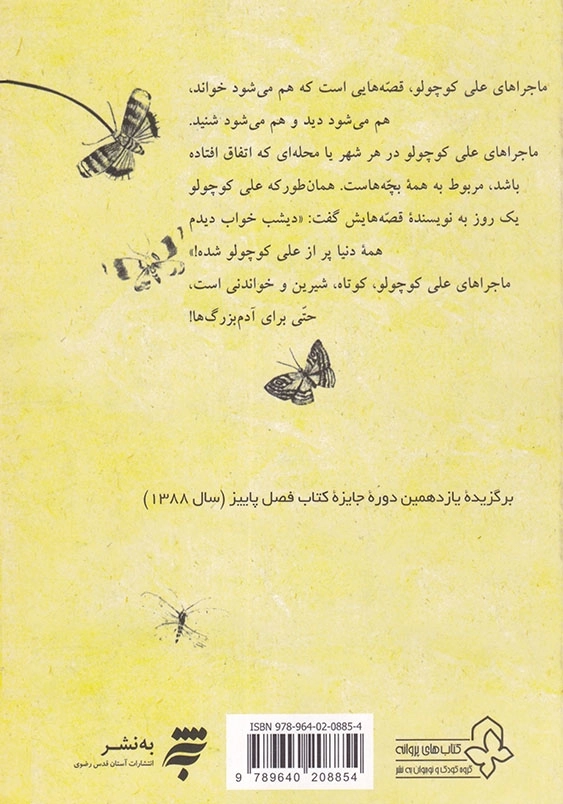 ماجراهای علی کوچولو، قصّه‌هایی است که هم می‌شود خواند،
هم می‌شود دید و هم می‌شود شنید.
ماجراهای علی کوچولو در هر شهر یا محله‌ای که اتفاق افتاده
باشد، مربوط به همهٔ بچّه‌هاست. همان‌طورکه علی کوچولو
یک روز به نویسندهٔ قصّه‌هایش گفت: «دیشب خواب دیدم
همهٔ دنیا پر از علی کوچولو شده!»
ماجراهای علی کوچولو، کوتاه، شیرین و خواندنی است،
حتّی برای آدم‌بزرگ‌ها!
برگزیدهٔ یازدهمین دورهٔ جایزهٔ کتاب فصل پاییز (سال ۱۳۸۸)
کتاب‌های پروانه
گروه کودک و نوجوان به نشر
ISBN 978-964-02-0885-4
9 789640 208854
به‌نشر
انتشارات آستان قدس رضوی